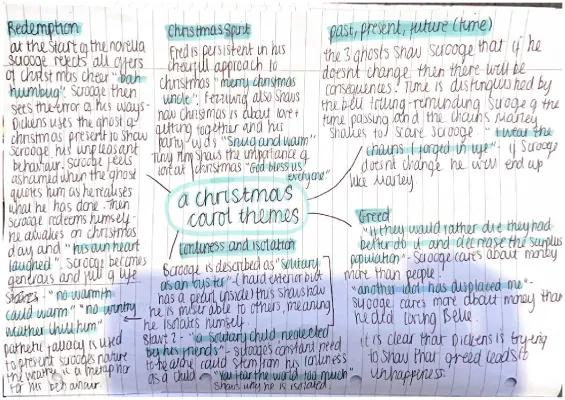 Redemption
at the start of the novella
scrooge rejects all offers
of christmas cheer "bah
humbug". Scrooge then
sees the error of his ways-
Dickens uses the ghost of
christmas present to show
scrooge his unpleasant
behaviour. scrooge feels
ashamed when the ghost
quotes him as he realises
what he has done. Then
scrooge redeems himself-
he awakes on christmas
day and "his own heart
laughed". Scrooge becomes
generous and full of life
"no warmth
could warm" "no wintry
weather chill him"
pathetic fallacy is used
to present scrooges nature
the weather is a metaphor
for his behaviour.
Christmas Spirit
Fred is persistent in his
cheerful approach to
christmas "merry christmas
uncle". Fezziwig also shows
how christmas is about love +
getting together and his
party was "snug and warm"
tiny tim shows the importance of
christmas "God bless us,
everyone"
past, present, future (time)
the 3 ghosts show scrooge that if he
doesnt change then there will be
consequences. Time is distinguished by
the bell tolling-reminding scrooge of the
time passing and the chains Marley
shakes to scare scrooge. "I wear the
chains I forged in life"- if scrooge
doesnt change he will end up
like Marley.
a christmas
carol themes
lonliness and isolation
Scrooge is described as "solitary
as an oyster"- (hard exterior but
has a pearl inside) this shows how
he is miserable to others, meaning
he isolates himself
Stave 2- "a solitary child neglected
by his friends"- scrooges constant need
to be alone could stem from his lonliness
as a child "You fear the world too much"
shows why he is isolated.
Greed
"if they would rather die they had
better do it and decrease the surplus
population"- scrooge cares about money
more than people!
"another idol has displaced me"-
scrooge cares more about money than
he did loving Belle.
it is clear that Dickens is trying
to show that greed leads to
unhappiness.